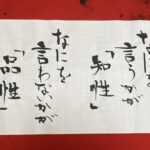 なにを
言うかが
「知性」
なにを
言わないかが
「品性」